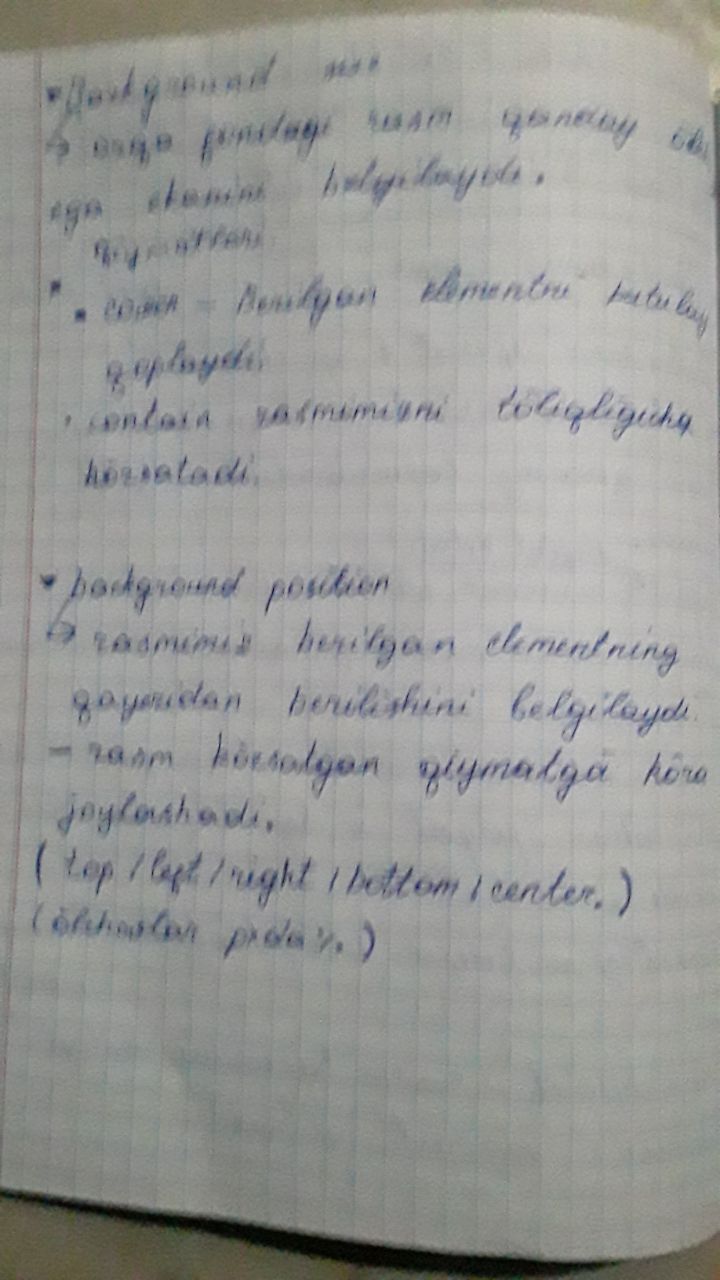 Background size
→ orqa fondagi rasm qanday
ega ekanini belgilaydi.
qiymatlari
• cover - Berilgan elementni butulay
qoplaydi.
• contain rasmimizni tõliqligicha
kõrsatadi.
background position
→ rasmimiz berilgan elementning
qayeridan berilishini belgilaydi.
- rasm kõrsatgan qiymatga kõra
joylashadi.
( top / left / right / bottom / center. )
( õlchovlar pxda %. )